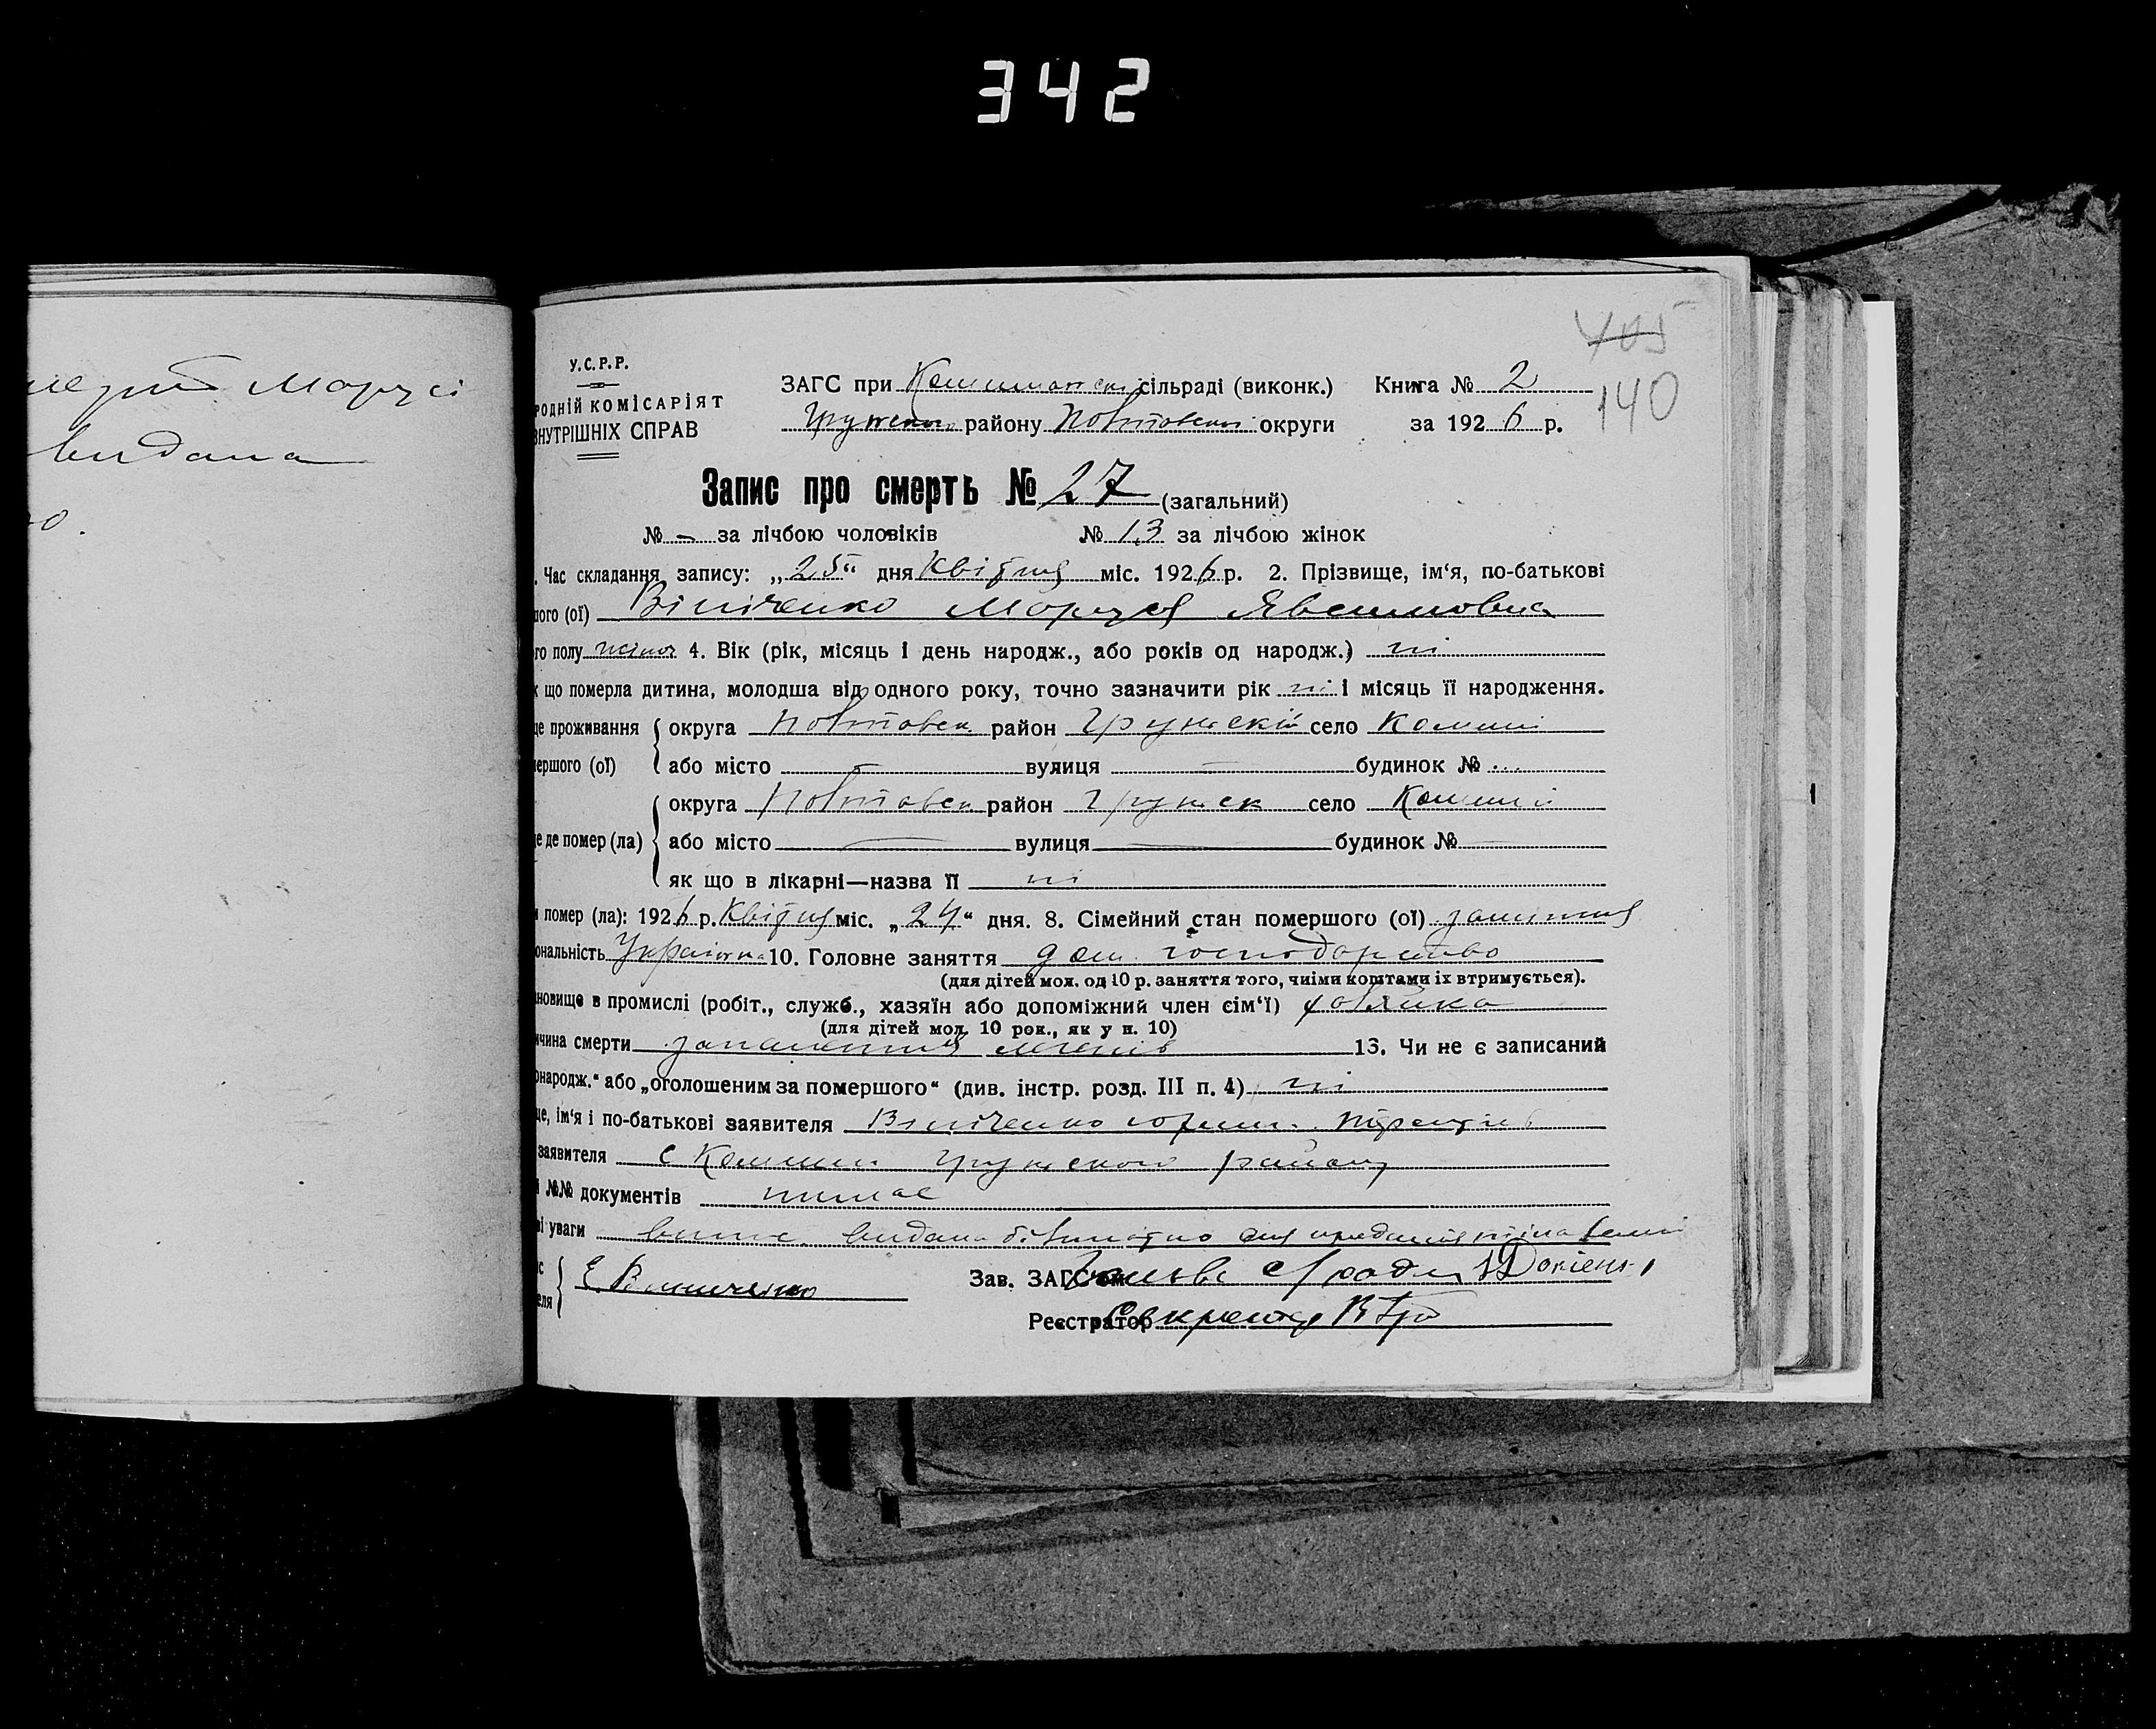 342
405
140
Марусі
видана
У.С.Р.Р.
РОДНІЙ КОМІСАРІЯТ
ВНУТРІШНІХ СПРАВ
ЗАГС при сільраді (виконк.) Книга № 2
району Полтовської округи за 1926 р.
Запис про смерть № 27 (загальний)
№ - за лічбою чоловіків № 13 за лічбою жінок
. Час складання запису: „25“ дня Квітня міс. 1926 р. 2. Прізвище, ім‘я, по-батькові
ого (ої) Вініченко Маруся
го полу жіноч 4. Вік (рік, місяць і день народж., або років од народж.) ні
що померла дитина, молодша від одного року, точно зазначити рік ні і місяць її народження.
це проживання округа Полтовск. район Грунскій село Комиші
мершого (ої) або місто — вулиця — будинок № ...
округа Полтовск район Грунск село Комиші
це де помер (ла) або місто — вулиця — будинок № —
як що в лікарні—назва її ні
помер (ла): 1926 р. Квітня міс. „24“ дня. 8. Сімейний стан помершого (ої) замужня
ональність Українка 10. Головне заняття дом. господарство
(для дітей мол. од 10 р. заняття того, чиїми коштами їх втримується).
новище в промислі (робіт., служб., хазяїн або допоміжний член сім‘ї) хозяйка
(для дітей мол. 10 рок., як у п. 10)
ичина смерти запалення легенів 13. Чи не є записаний
онародж.“ або „оголошеним за помершого“ (див. інстр. розд. III п. 4) ні
ще, ім‘я і по-батькові заявителя Вініченко
заявителя с Комиші Грунского району
і №№ документів немає
ві уваги видана для тіла землі
Е. Винниченко Зав. ЗАГС‘ом
еля Реєстратор Секретар